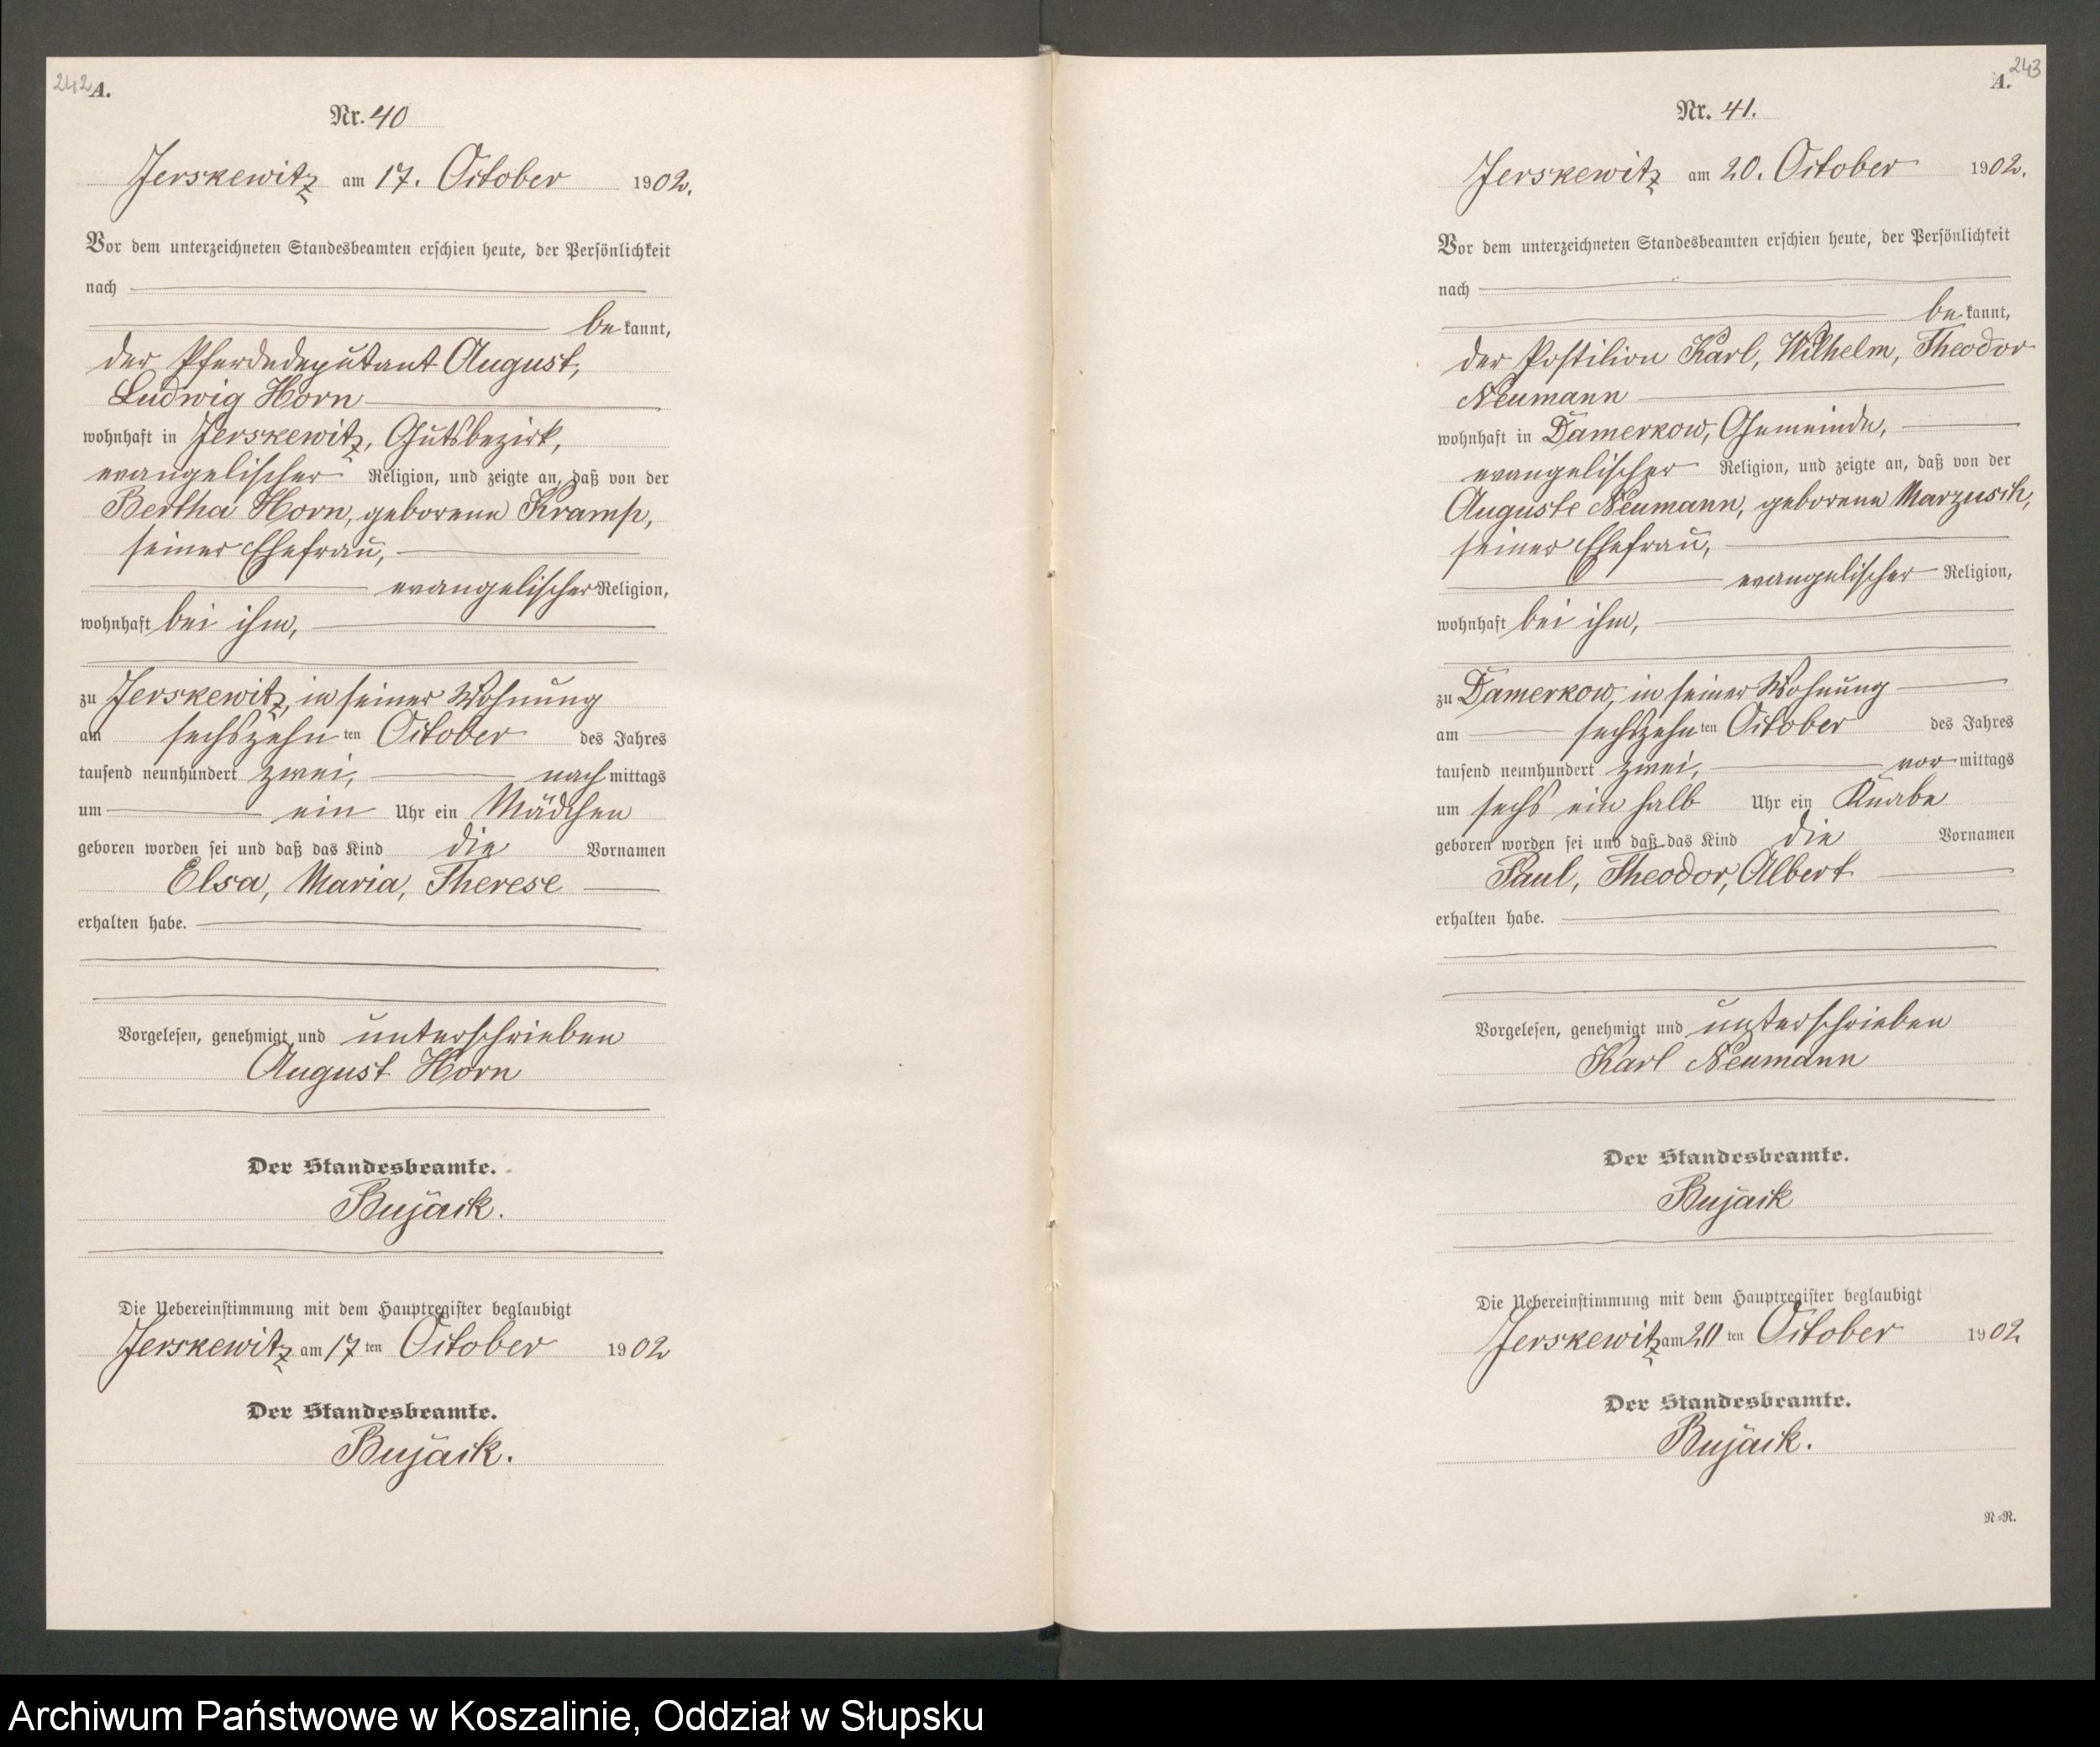 242 A.
Nr. 40
Jerskewitz am 17. October 1902.
Vor dem unterzeichneten Standesbeamten erschien heute, der Persönlichkeit
nach
be kannt,
der Pferdedeputant August,
Ludwig Horn
wohnhaft in Jerskewitz, Gutsbezirk,
evangelischer Religion, und zeigte an, daß von der
Bertha Horn, geborene Kramp,
seiner Ehefrau,
evangelischer Religion,
wohnhaft bei ihm,
zu Jerskewitz, in seiner Wohnung
am sechszehn ten October des Jahres
tausend neunhundert zwei, nach mittags
um ein Uhr ein Mädchen
geboren worden sei und daß das Kind die Vornamen
Elsa, Maria, Therese
erhalten habe.
Vorgelesen, genehmigt und unterschrieben
August Horn
Der Standesbeamte.
Bujack.
Die Uebereinstimmung mit dem Hauptregister beglaubigt
Jerskewitz am 17 ten October 1902
Der Standesbeamte.
Bujack.
A. 243
Nr. 41.
Jerskewitz am 20. October 1902.
Vor dem unterzeichneten Standesbeamten erschien heute, der Persönlichkeit
nach
be kannt,
der Postilion Karl, Wilhelm, Theodor
Neumann
wohnhaft in Damerkow, Gemeinde,
evangelischer Religion, und zeigte an, daß von der
Auguste Neumann, geborene Marzusch,
seiner Ehefrau,
evangelischer Religion,
wohnhaft bei ihm,
zu Damerkow, in seiner Wohnung
am sechszehn ten October des Jahres
tausend neunhundert zwei, vor mittags
um sechs ein halb Uhr ein Knabe
geboren worden sei und daß das Kind die Vornamen
Paul, Theodor, Albert
erhalten habe.
Vorgelesen, genehmigt und unterschrieben
Karl Neumann
Der Standesbeamte.
Bujack
Die Uebereinstimmung mit dem Hauptregister beglaubigt
Jerskewitz am 20 ten October 1902
Der Standesbeamte.
Bujack.
N=R.
Archiwum Państwowe w Koszalinie, Oddział w Słupsku